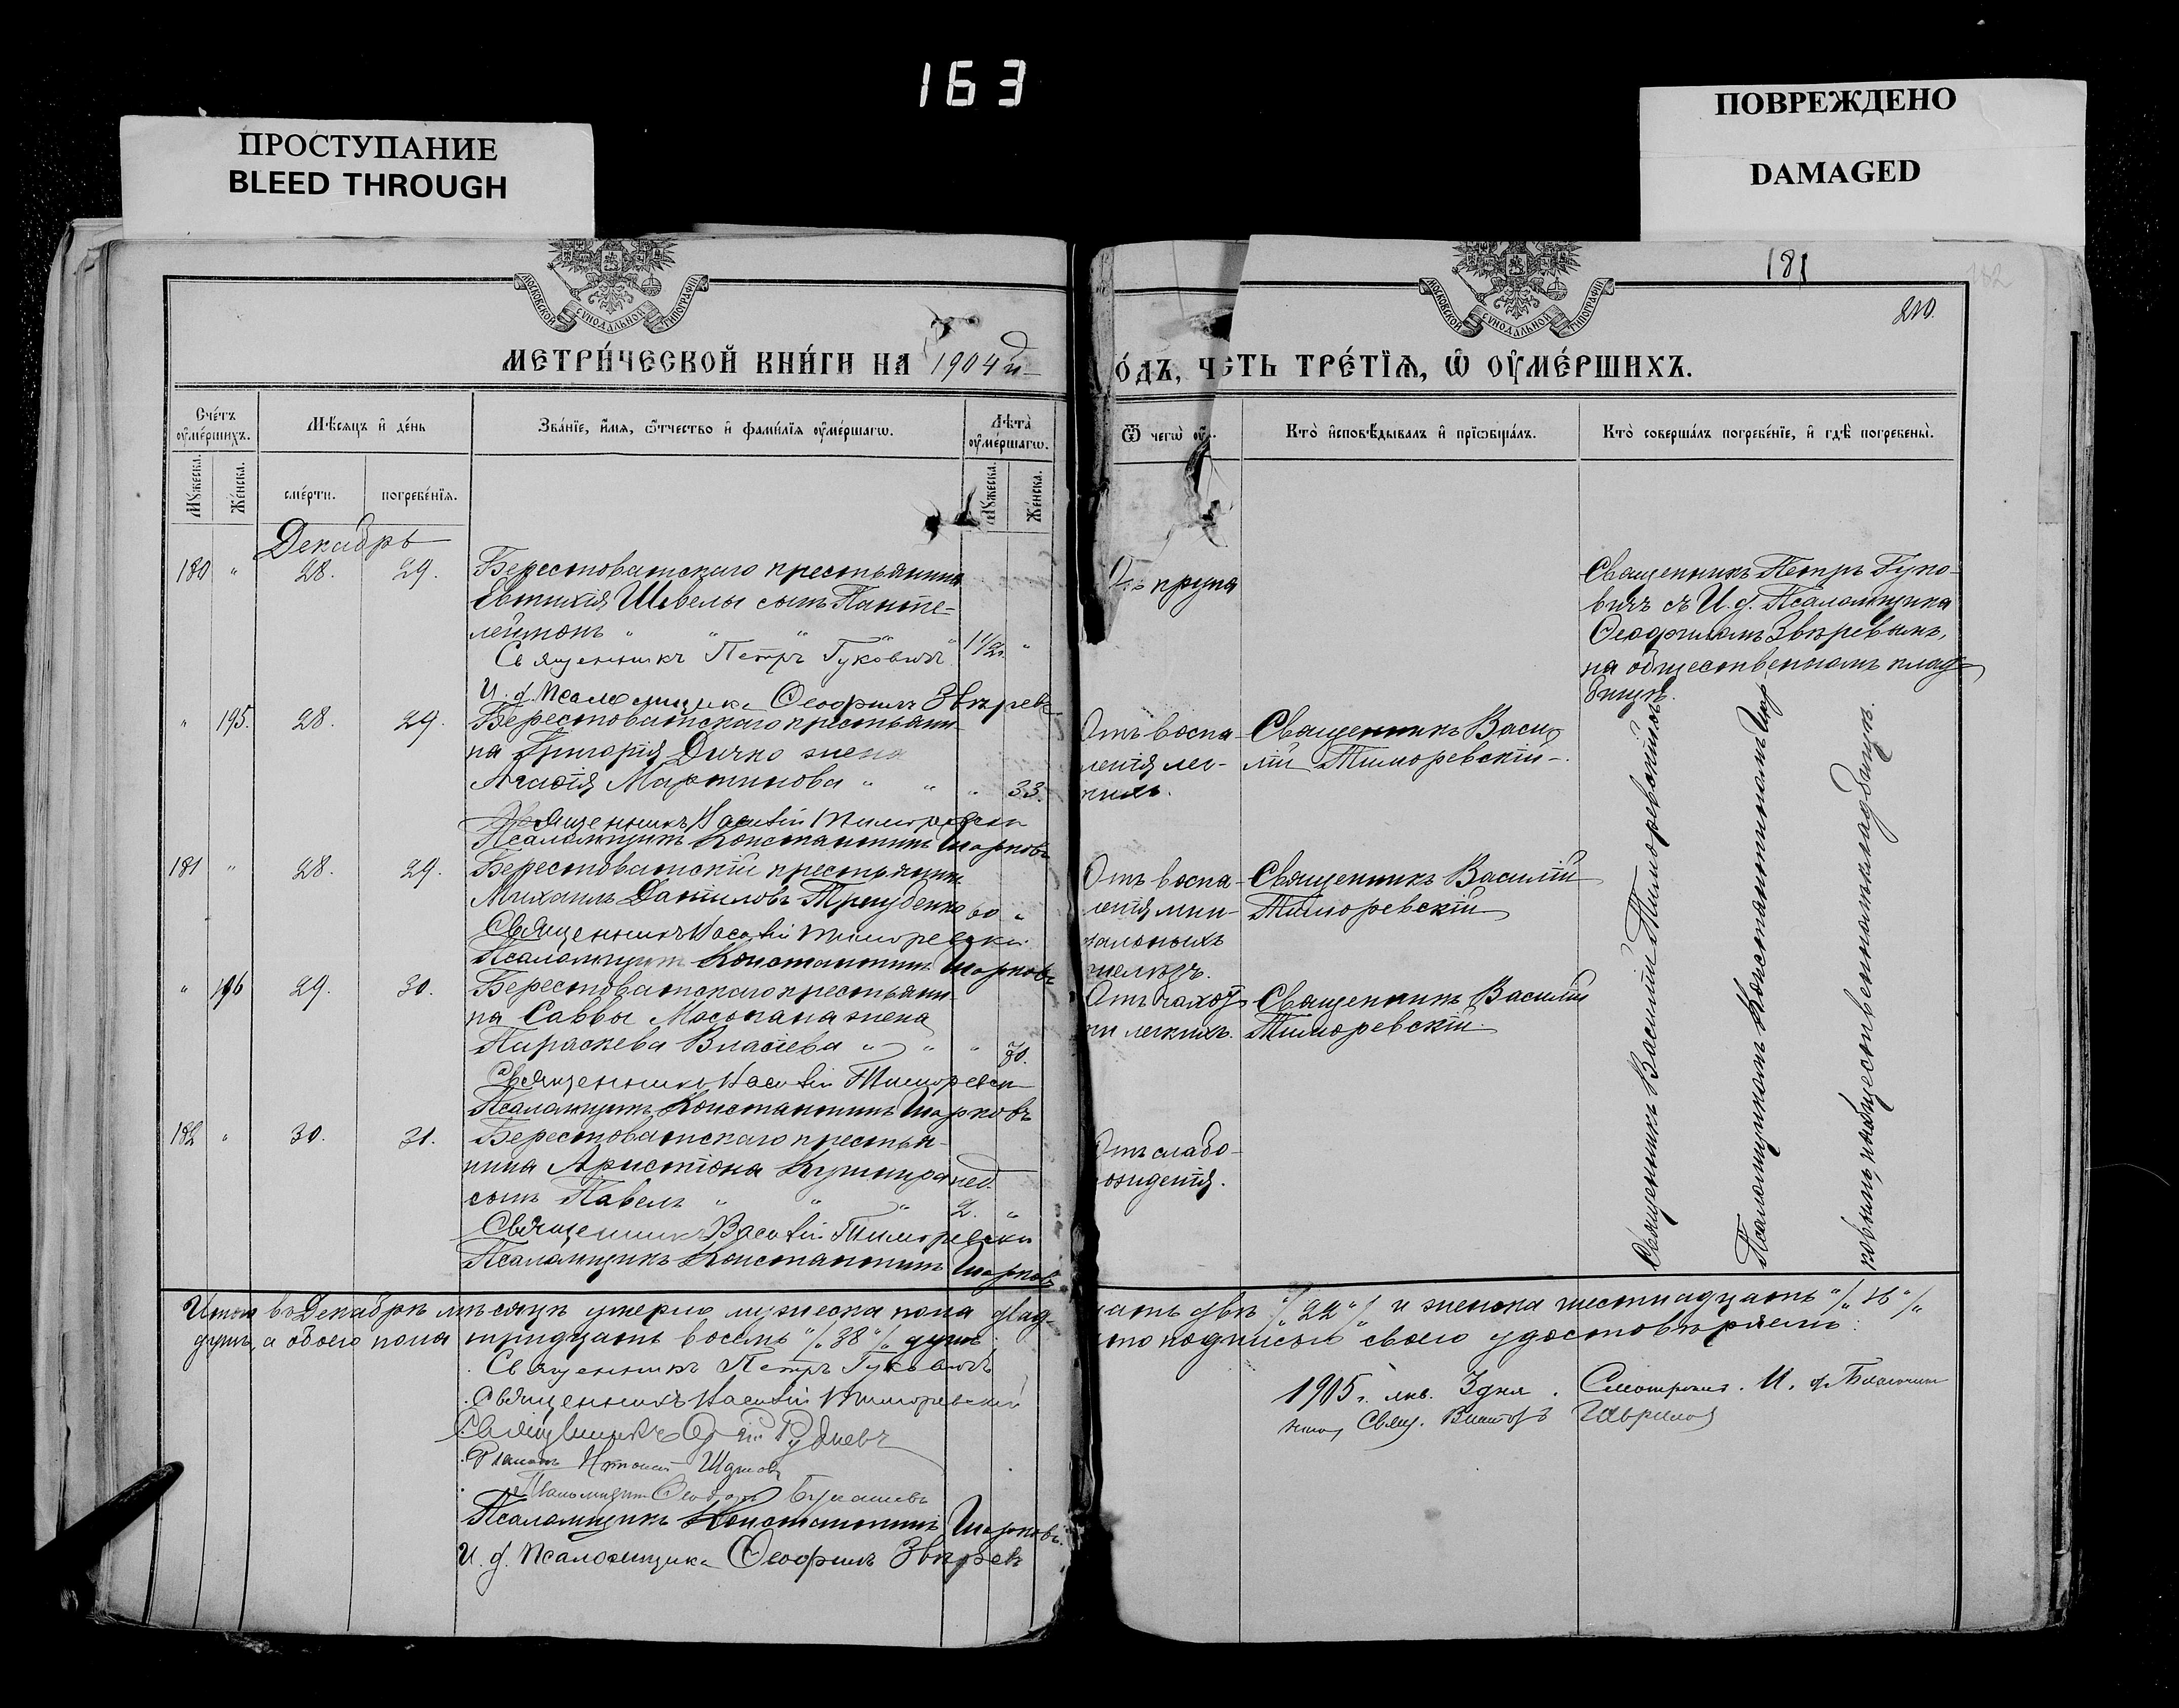 163
ПРОСТУПАНИЕ
BLEED THROUGH
ПОВРЕЖДЕНО
DAMAGED
МОСКОВСКОЙ СѴНОДАЛЬНОЙ ТИПОГРАФІИ
МОСКОВСКОЙ СѴНОДАЛЬНОЙ ТИПОГРАФІИ
181
182
210.
МЕТРИ́ЧЕСКОЙ КНИ́ГИ НА 1904й
О́ДЪ, Ч СТЬ ТРЕ́ТЇѦ, Ѿ ОУ҆МЕ́РШИХЪ.
Сче́тъ оу҆ме́ршихъ.
Мѣ́сяцъ и҆ де́нь
Зва́нїе, и҆́мя, ѻ҆́тчество и҆ фами́лїя оу҆ме́ршагѡ.
Лѣ̑та оу҆ме́ршагѡ.
Ѿ чегѡ̀ оу҆
Кто̀ и҆сповѣ́дывалъ и҆ прїѡбща́лъ.
Кто̀ соверша́лъ погребе́нїе, и҆ гдѣ̀ погребены̀.
Мꙋ́жеска.
Же́нска.
сме́рти.
погребе́нїя.
Мꙋ́жеска.
Же́нска.
Декабрь
180 " 28. 29. Берестоватскаго крестьянина
Евтихія Шевелы сынъ Панте-
леймонъ " " " " " 1 1/2 "
Священникъ Петръ Гуковичъ
И. д. Псаломщика Ѳеофилъ Звѣревъ
Отъ крупа
Священникъ Петръ Гуко-
вичъ съ И. д. Псаломщика
Ѳеофиломъ Звѣревымъ,
на общественномъ клад-
бищѣ.
" 195. 28. 29. Берестоватскаго крестьяни-
на Григорія Дичко жена
Агафія Мартинова " " " 33.
Священникъ Василій Тиморевскій
Псаломщикъ Константинъ Шарковъ
Отъ воспа-
ленія лег-
кихъ.
Священникъ Васи-
лій Тиморевскій.
181 " 28. 29. Берестоватскій крестьянинъ
Михаилъ Даниловъ 60 "
Священникъ Василій Тиморевскій
Псаломщикъ Константинъ Шарковъ
Отъ воспа-
ленія мин-
дальныхъ
желѣзъ.
Священникъ Василій
Тиморевскій
" 196 29. 30. Берестоватскаго крестьяни-
на Саввы жена
Параскева Власіева " " " 70.
Священникъ Василій Тиморевскій
Псаломщикъ Константинъ Шарковъ
Отъ чахот
ки легкихъ.
Священникъ Василій
Тиморевскій.
182 " 30. 31. Берестоватскаго крестья-
нина Аристіона Кушнира нед.
сынъ Павелъ " " " 2. "
Священникъ Василій Тиморевскій
Псаломщикъ Константинъ Шарковъ
Отъ слабо-
ожденія.
Священникъ Василій Тиморевскій съ
Псаломщикомъ Константиномъ Шар-
ковымъ, на общественномъ кладбищѣ.
Итого въ Декабрѣ мѣсяцѣ умерло мужеска пола двад-
цать двѣ "/"22"/" и женска шестнадцать "/"16"/"
душъ, а обоего пола тридцать восемь "/"38"/" душъ.
что подписью своею удостовѣряемъ:
Священникъ Петръ Гуковичъ
Священникъ Василій Тиморевскій
Священникъ Рудневъ
Псаломщикъ Ѳеодоръ
Псаломщикъ Константинъ Шарковъ.
И. д. Псаломщика Ѳеофилъ Звѣревъ
1905 г. янв. 3 дня. Смотрѣлъ. И. д. Благочин
наго Свящ. Викторъ